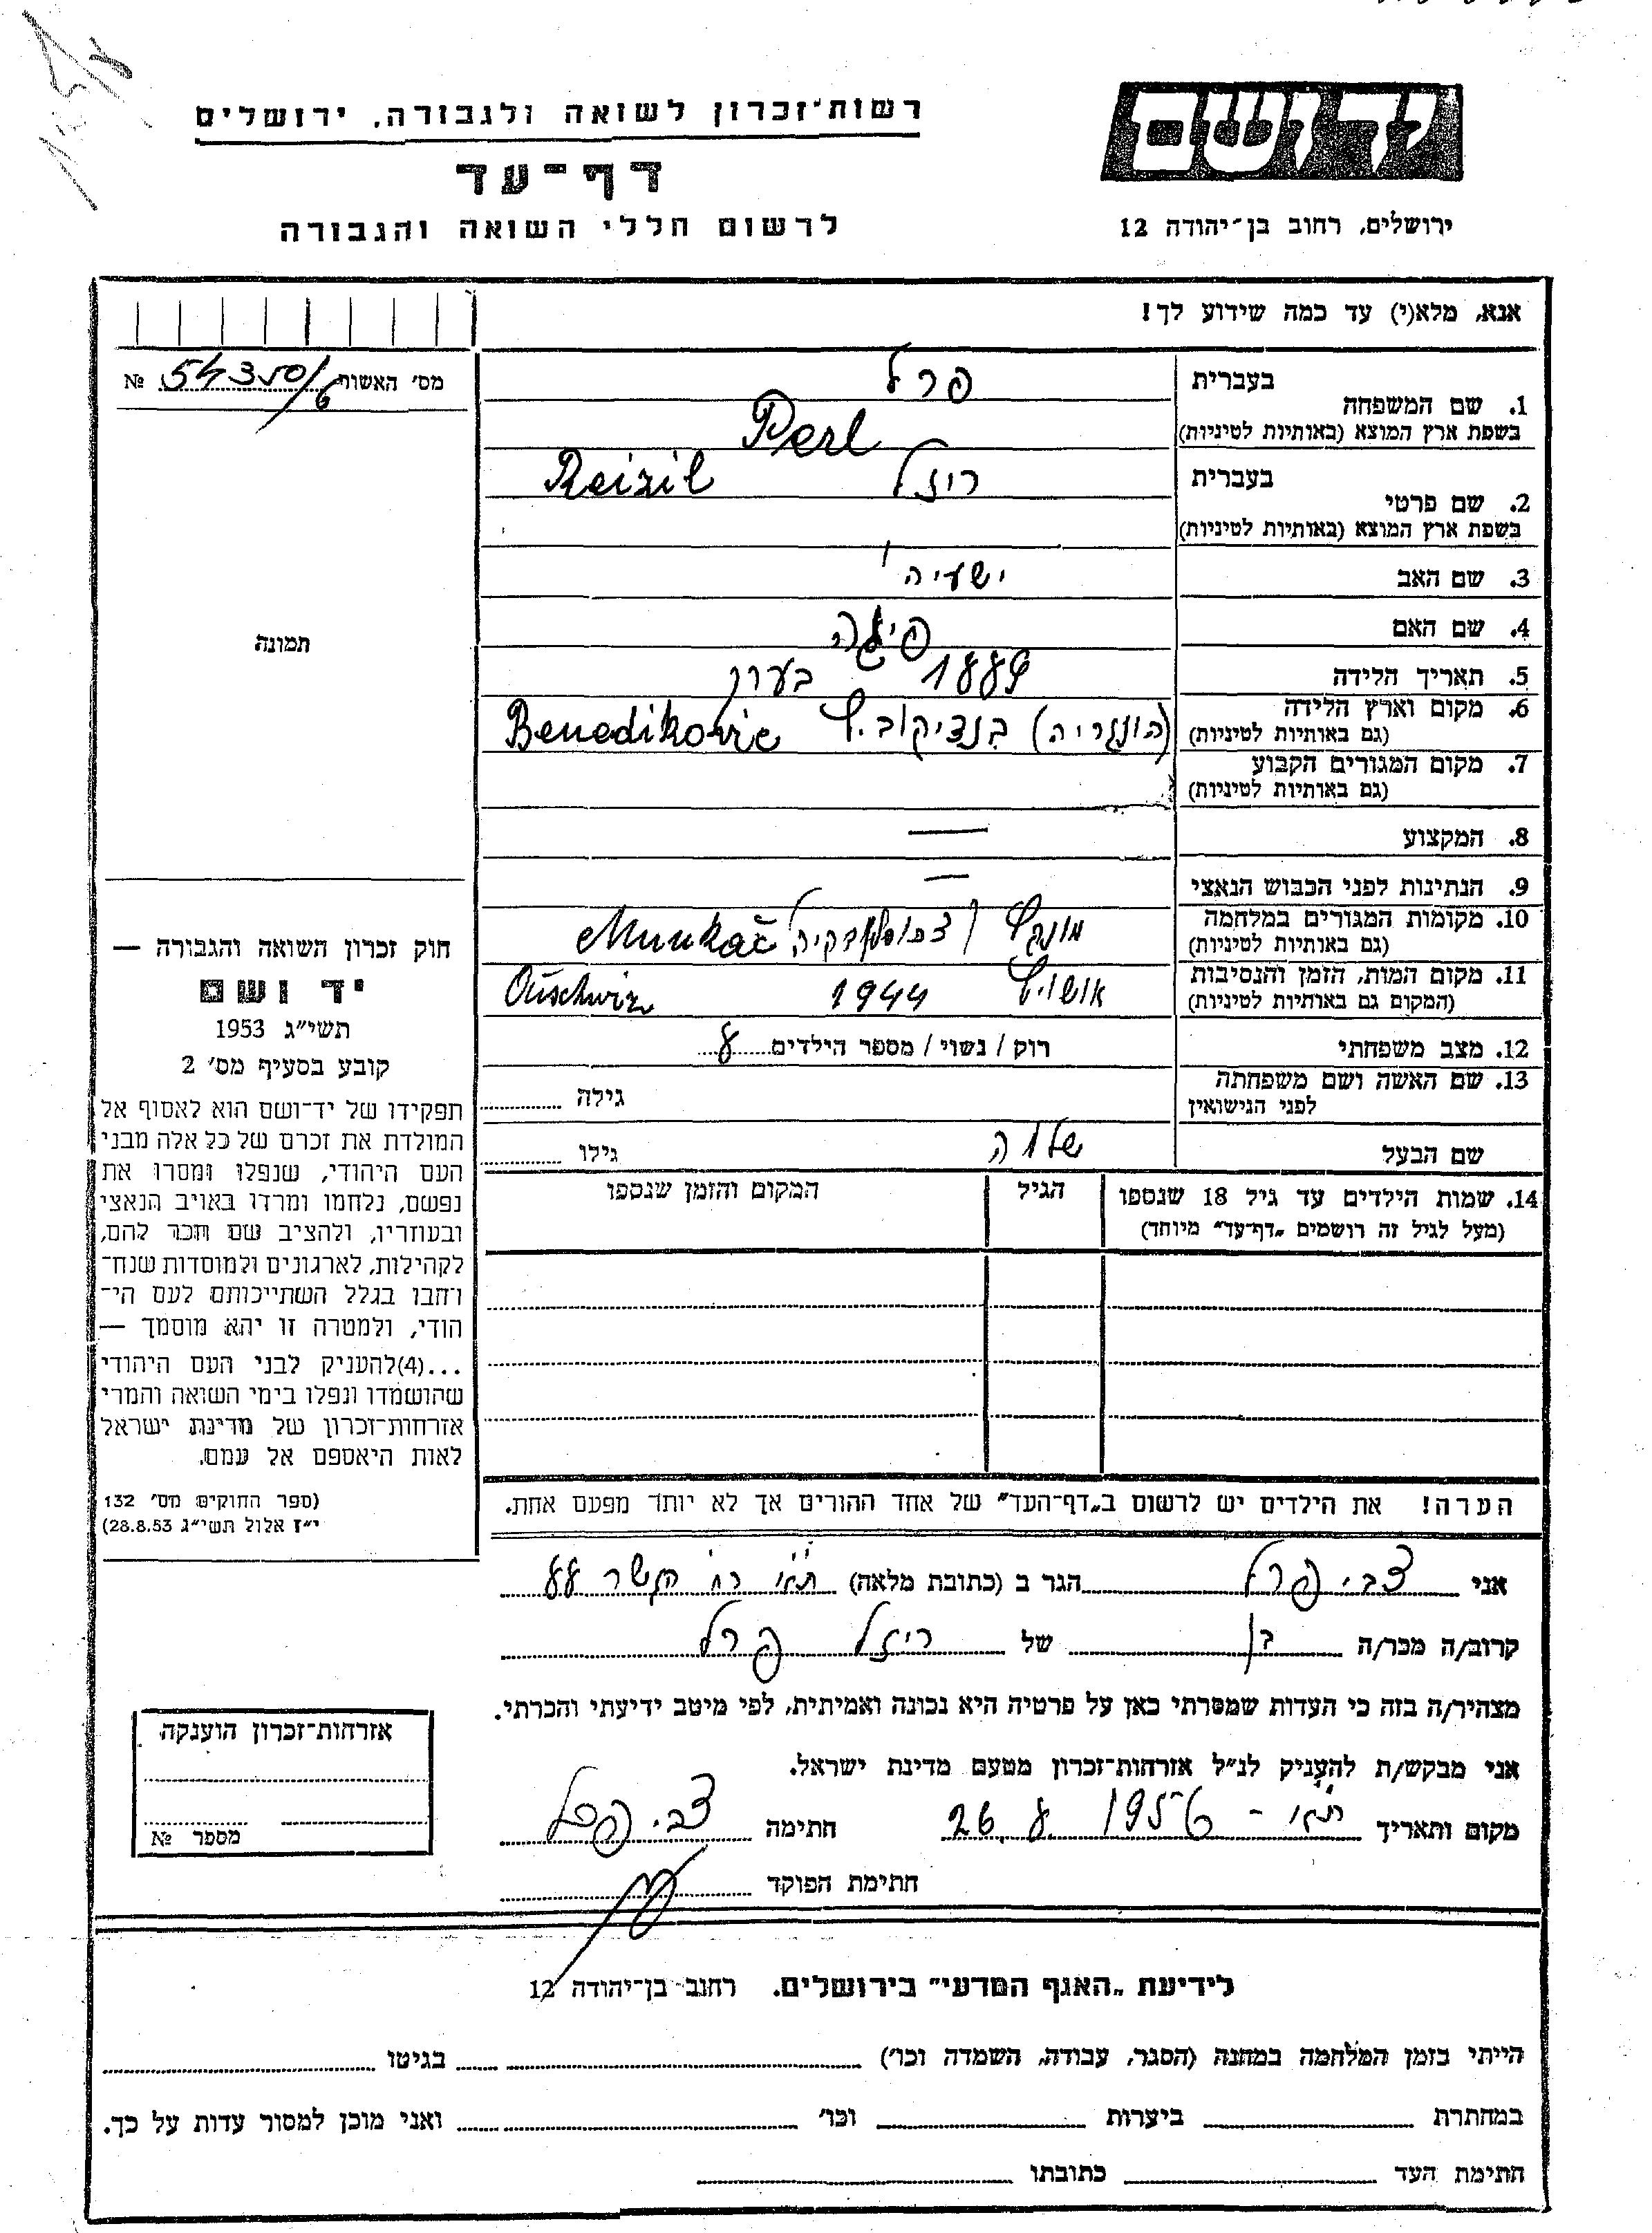 רשות־זכרון לשואה ולגבורה, ירושלים
דף־עד
לרשום חללי השואה והגבורה
יד ושם
ירושלים, רחוב בן־יהודה 12
אנא, מלא(י) עד כמה שידוע לך!
מס׳ האשות № 54350/6
תמונה
1. שם המשפחה בעברית פרל
בשפת ארץ המוצא (באותיות לטיניות) Perl
2. שם פרטי בעברית ריזל Reizil
בשפת ארץ המוצא (באותיות לטיניות)
3. שם האב ישעיה
4. שם האם פיגה
5. תאריך הלידה 1889 בערך
6. מקום וארץ הלידה
(גם באותיות לטיניות) (הונגריה) Benedikovic
7. מקום המגורים הקבוע
(גם באותיות לטיניות)
8. המקצוע —
9. הנתינות לפני הכבוש הנאצי —
10. מקומות המגורים במלחמה
(גם באותיות לטיניות) Munkač
11. מקום המות, הזמן והנסיבות
(המקום גם באותיות לטיניות) אושויץ 1944 Ouschwiz
12. מצב משפחתי רוק / נשוי / מספר הילדים 8
13. שם האשה ושם משפחתה
לפני הנישואין גילה
שם הבעל גילו
14. שמות הילדים עד גיל 18 שנספו הגיל המקום והזמן שנספו
(מעל לגיל זה רושמים „דף־עד" מיוחד)
הערה! את הילדים יש לרשום ב„דף־העד" של אחד ההורים אך לא יותר מפעם אחת.
חוק זכרון השואה והגבורה —
יד ושם
תשי״ג 1953
קובע בסעיף מס׳ 2
תפקידו של יד־ושם הוא לאסוף אל
המולדת את זכרם של כל אלה מבני
העם היהודי, שנפלו ומסרו את
נפשם, נלחמו ומרדו באויב הנאצי
ובעוזריו, ולהציב שם וזכר להם,
לקהילות, לארגונים ולמוסדות שנח־
רבו בגלל השתייכותם לעם הי־
הודי, ולמטרה זו יהא מוסמך —
...(4)להעניק לבני העם היהודי
שהושמדו ונפלו בימי השואה והמרי
אזרחות־זכרון של מדינת ישראל
לאות היאספם אל עמם.
(ספר החוקים מס׳ 132
י״ז אלול תשי״ג 28.8.53)
אני צבי פרל הגר ב (כתובת מלאה) ת״א רח׳ הקשר 88
קרוב/ה מכר/ה בן של ריזל פרל
מצהיר/ה בזה כי העדות שמסרתי כאן על פרטיה היא נכונה ואמיתית, לפי מיטב ידיעתי והכרתי.
אני מבקש/ת להעניק לנ״ל אזרחות־זכרון מטעם מדינת ישראל.
מקום ותאריך ת״א - 26.8.1956 חתימה צבי פרל
חתימת הפוקד
אזרחות־זכרון הוענקה
מספר №
לידיעת „האגף המדעי" בירושלים. רחוב בן־יהודה 12
הייתי בזמן המלחמה במחנה (הסגר, עבודה, השמדה וכו׳) בגיטו
במחתרת ביערות וכו׳ ואני מוכן למסור עדות על כך.
חתימת העד כתובתו